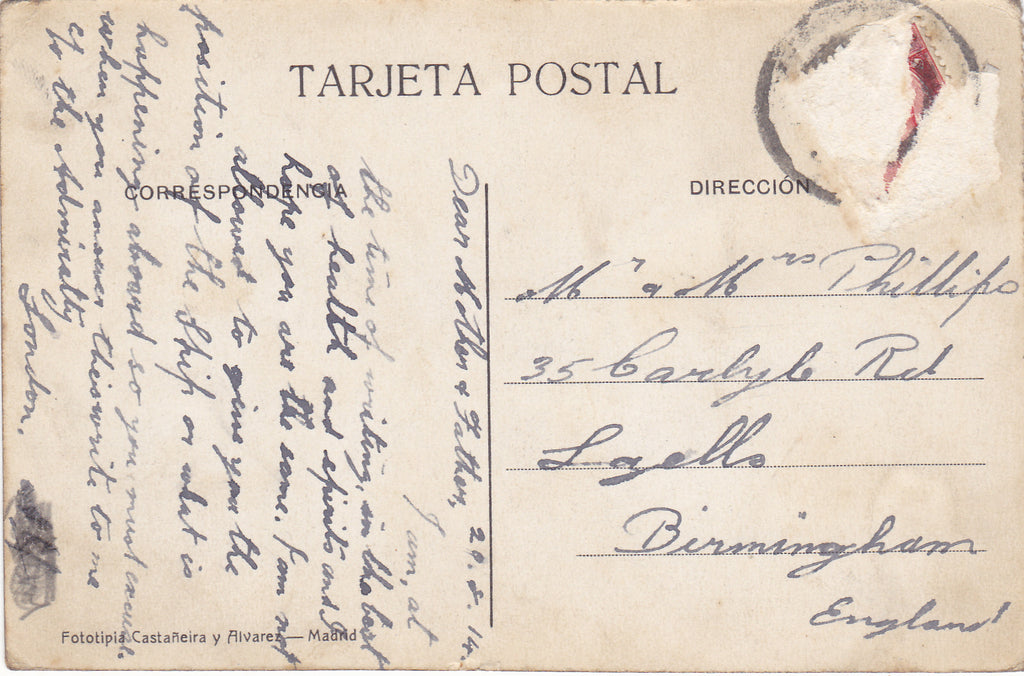 TARJETA POSTAL
CORRESPONDENCIA
DIRECCIÓN
Dear Mother & Father, 29.8.14.
I am, at
the time of writing, in the best
of health and spirits and I
hope you are the same. I am not
allowed to give you the
position of the Ship or what is
happening aboard so you must excuse.
when you answer this write to me
c/o the Admiralty
London.
Mr & Mrs Phillips
35 Carlyle Rd
Lozells
Birmingham
England
Fototipia Castañeira y Alvarez — Madrid